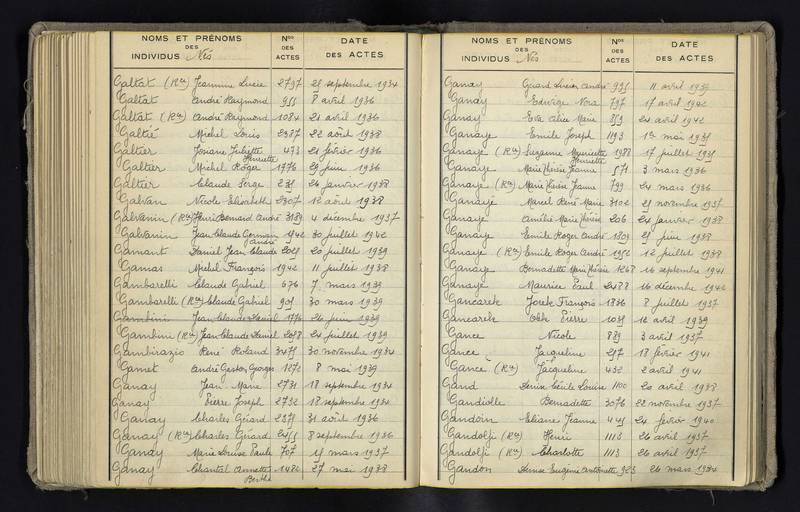 NOMS ET PRÉNOMS
DES
INDIVIDUS Nés
Nos
DES
ACTES
DATE
DES ACTES
Galtat (Rce) Jeannine Lucie 2797 28 septembre 1934
Galtat André Raymond 955 8 avril 1936
Galtat (Rce) André Raymond 1084 21 avril 1936
Galtié Michel Louis 2387 22 août 1938
Galtier Josiane Juliette Henriette 473 21 février 1936
Galtier Michel Roger 1776 29 juin 1936
Galtier Claude Serge 231 26 janvier 1938
Galvan Nicole Elisabeth 2307 12 août 1938
Galvanin (Rce) Henri Bernard André 3189 4 décembre 1937
Galvanin Jean Claude Germain André 1942 30 juillet 1942
Gamant Daniel Jean Claude 2029 20 juillet 1939
Gamas Michel François 1942 11 juillet 1938
Gambarelli Claude Gabriel 676 7 mars 1939
Gambarelli (Rce) Claude Gabriel 909 30 mars 1939
Gambini Jean Claude Daniel 1776 26 juin 1939
Gambini (Rce) Jean Claude Daniel 2058 24 juillet 1939
Gambirazio René Roland 3475 30 novembre 1934
Gamet André Gaston Georges 1272 8 mai 1939
Ganay Jean Marie 2731 18 septembre 1934
Ganay Pierre Joseph 2732 18 septembre 1934
Ganay Charles Gérard 2371 31 août 1936
Ganay (Rce) Charles Gérard 2455 8 septembre 1936
Ganay Marie Louise Paule 707 15 mars 1937
Ganay Chantal Annette Berthe 1482 27 mai 1938
NOMS ET PRÉNOMS
DES
INDIVIDUS Nés
Nos
DES
ACTES
DATE
DES ACTES
Ganay Gérard Lucien André 995 11 avril 1939
Ganay Edwige Nora 797 17 avril 1942
Ganay Eve Alice Marie 859 24 avril 1942
Ganaye Emile Joseph 1193 1er mai 1935
Ganaye (Rce) Suzanne Henriette 1988 17 juillet 1935
Ganaye Marie Thérèse Jeanne 571 3 mars 1936
Ganaye (Rce) Marie Thérèse Jeanne 799 24 mars 1936
Ganaye Marcel René Marie 3102 25 novembre 1937
Ganaye Amélie Marie Thérèse 206 24 janvier 1938
Ganaye Emile Roger André 1809 28 juin 1938
Ganaye (Rce) Emile Roger André 1952 12 juillet 1938
Ganaye Bernadette Marie Thérèse 1268 16 septembre 1941
Ganaye Maurice Paul 2488 16 décembre 1942
Gancarek Jorek François 1836 8 juillet 1937
Gancarek Pierre 1038 12 avril 1939
Gance Nicole 889 3 avril 1937
Gance Jacqueline 297 18 février 1941
Gance (Rce) Jacqueline 432 2 avril 1941
Gand Denise Cécile Louise 1100 20 avril 1938
Gandiolle Bernadette 3076 22 novembre 1937
Gandoin Eliane Jeanne 445 24 février 1940
Gandolfi (Rce) Henri 1113 26 avril 1937
Gandolfi (Rce) Charlotte 1113 26 avril 1937
Gandon Denise Eugénie Antoinette 923 26 mars 1934